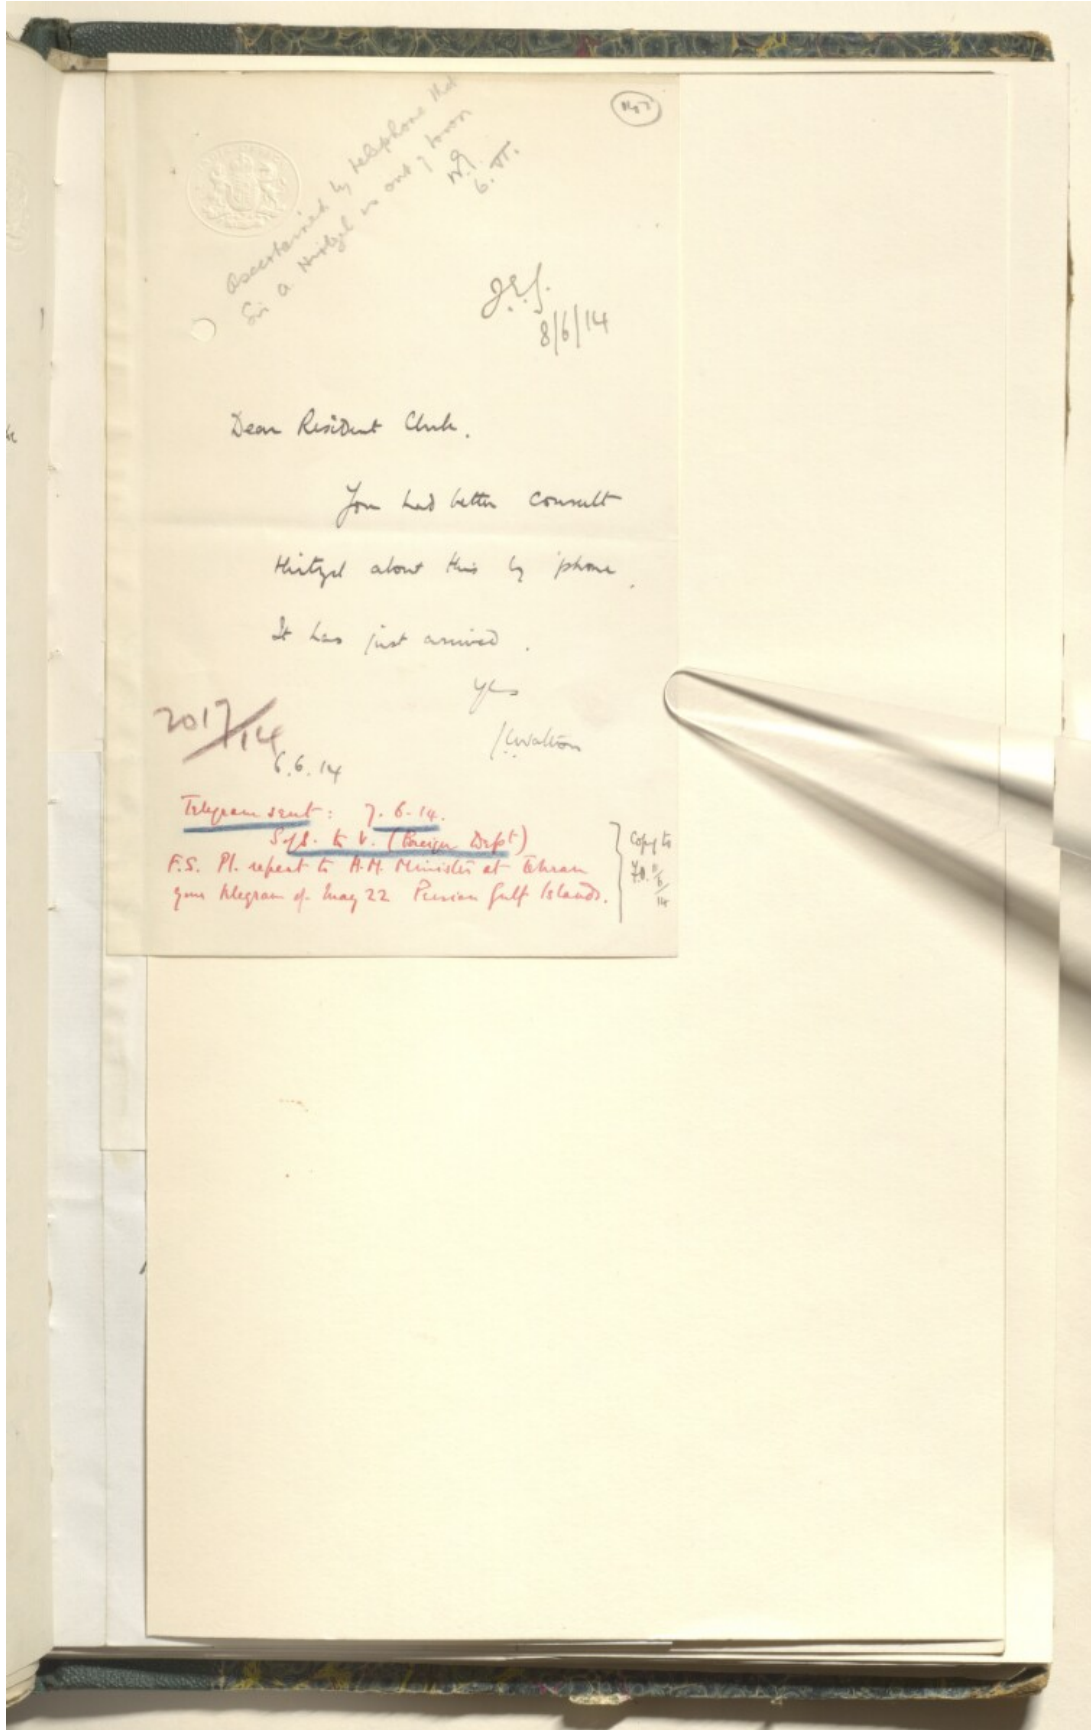 Ascertained by telephone that
Sir A Hirtzel is out of town
6.VI.
8/6/14
Dear Resident Clerk.
You had better consult
Hirtzel about this by 'phone.
It has just arrived.
Yrs
J.C. Walton
2017/14
6.6.14
Telegram sent: 7.6.14.
S/S. to V. (Foreign Dept)
F.S. Pl. repeat to H.M. Minister at Tehran
your telegram of May 22 Persian Gulf Islands.
Copy to
F.O.